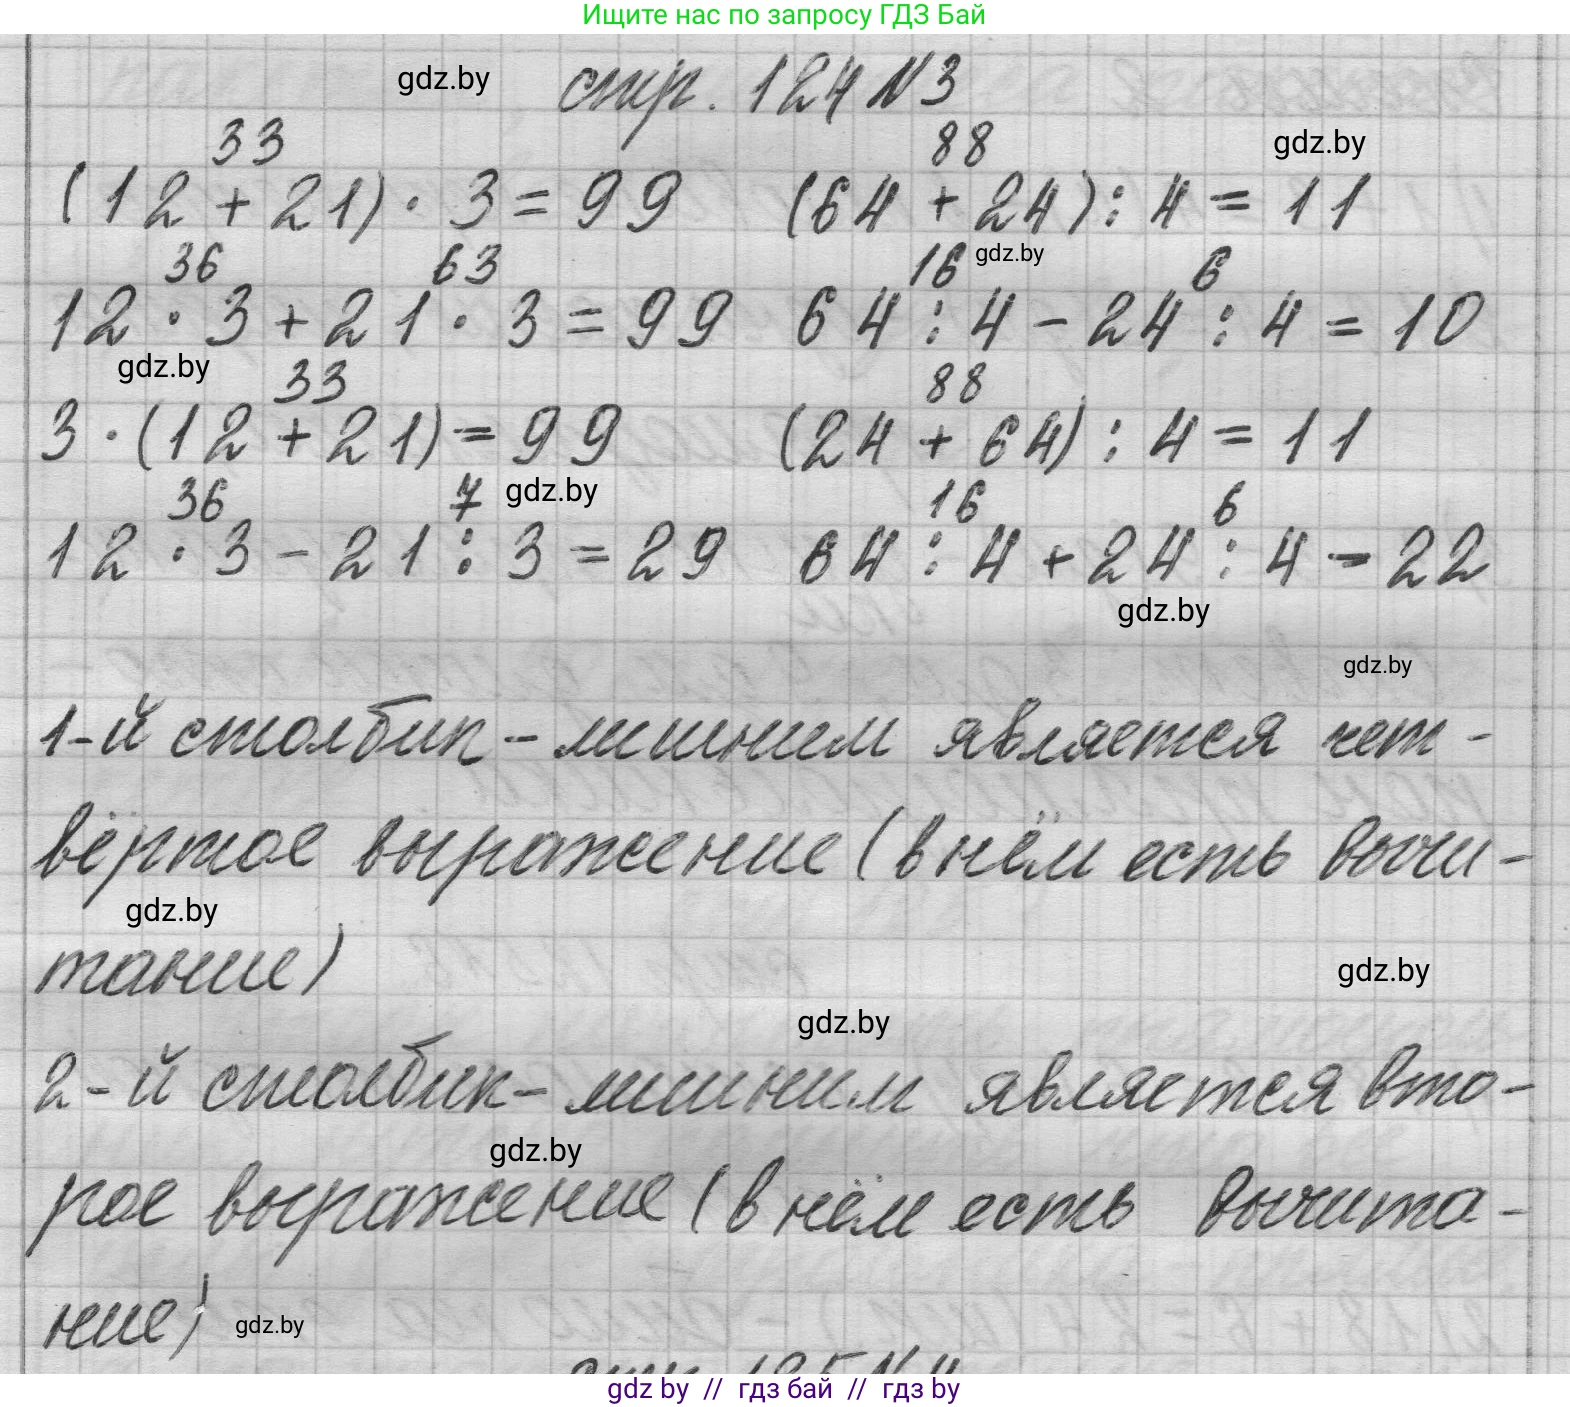 Ищите нас по запросу ГДЗ Бай
gdz.by стр. 124 №3
33 88 gdz.by
(12 + 21) · 3 = 99 (64 + 24) : 4 = 11
36 63 16 gdz.by 6
12 · 3 + 21 · 3 = 99 64 : 4 - 24 : 4 = 10
gdz.by 33 88
3 · (12 + 21) = 99 (24 + 64) : 4 = 11
36 7 gdz.by 16 6
12 · 3 - 21 : 3 = 29 64 : 4 + 24 : 4 = 22
gdz.by
gdz.by
1-й столбик - лишним является чет-
вёртое выражение (в нём есть вычи-
gdz.by
тание)
gdz.by
gdz.by
2-й столбик - лишним является вто-
gdz.by
рое выражение (в нём есть вычита-
ние) gdz.by
стр. 125 №4
gdz by // гдз бай // гдз by